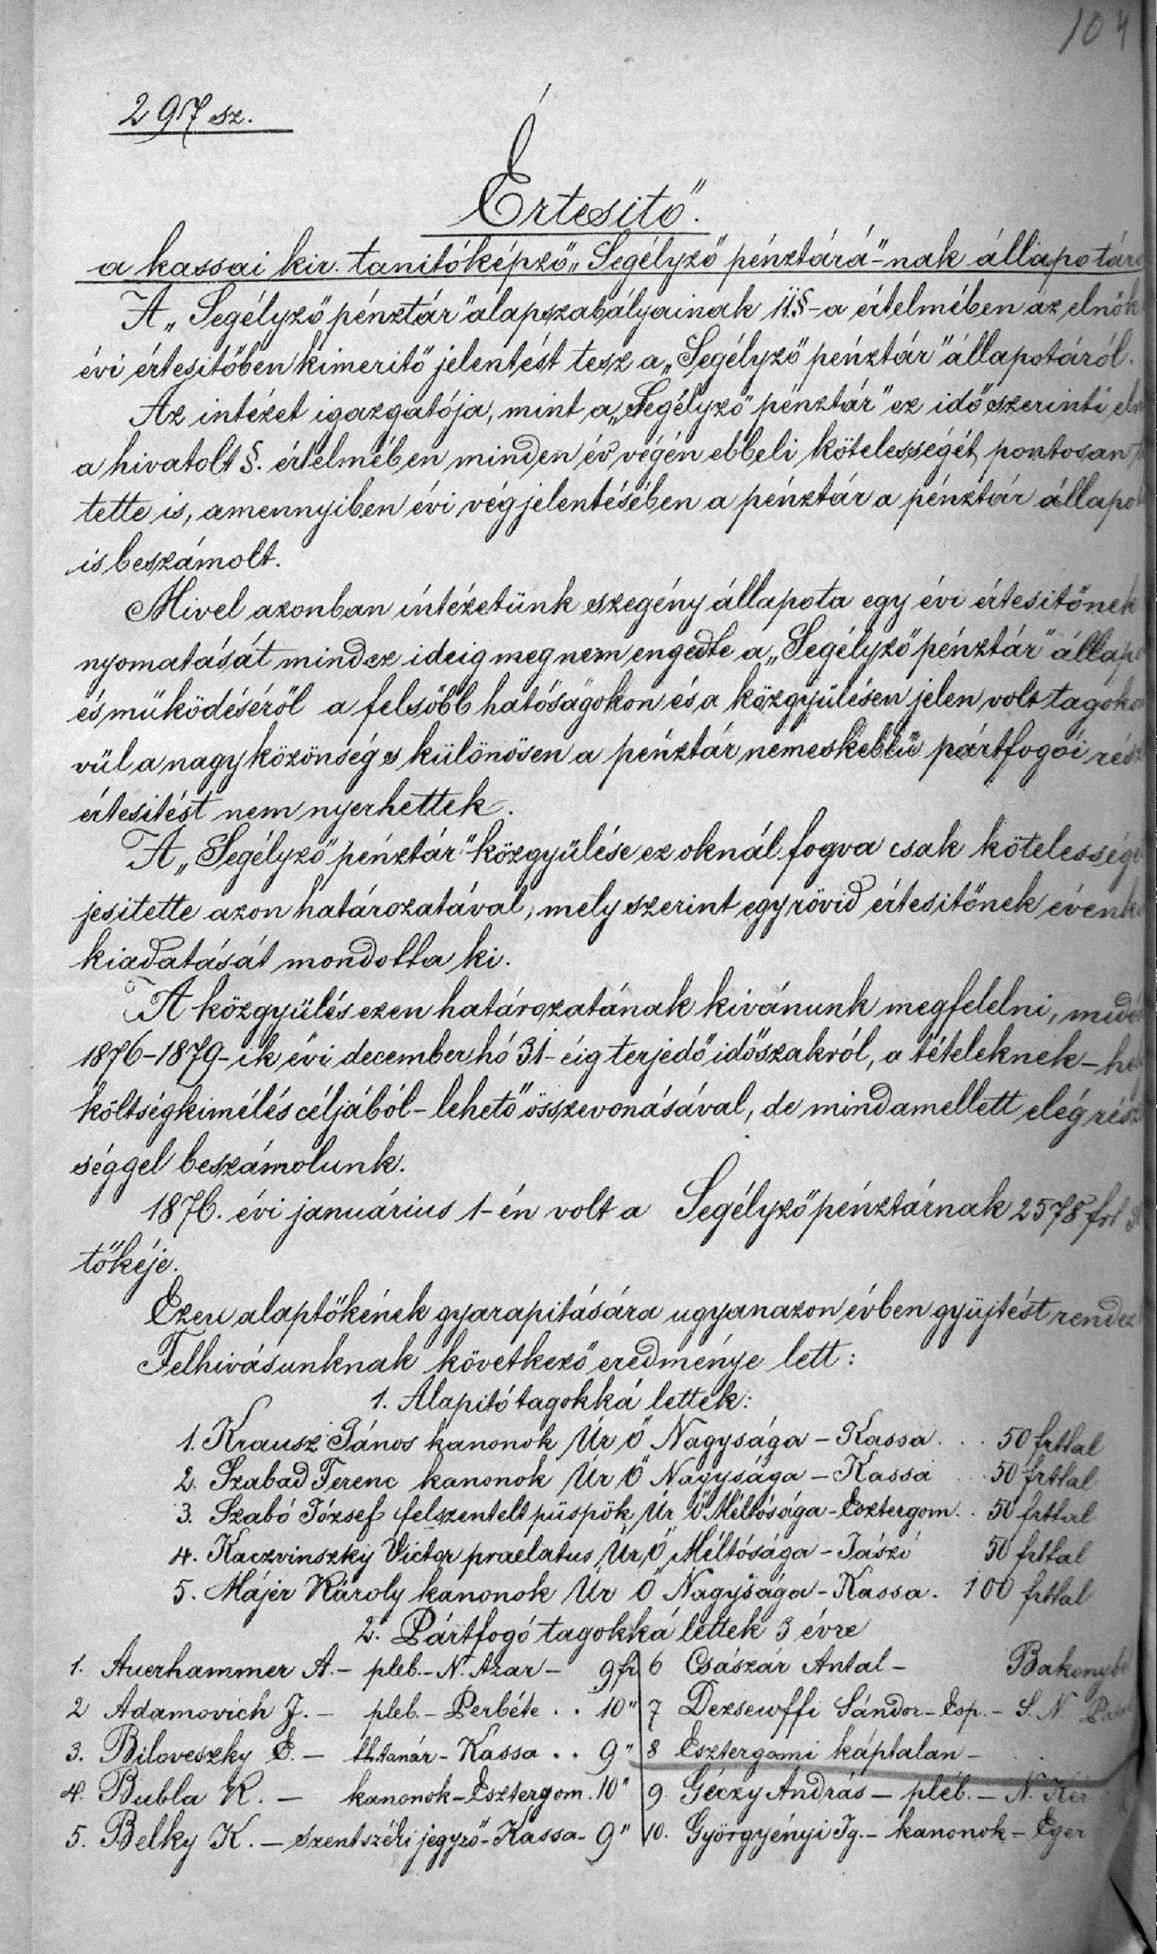 104
297 sz.
Értesitő.
a kassai kir. tanitóképző „Segélyző pénztárá"-nak állapotáro
A „Segélyző pénztár" alapszabályainak 11.§-a értelmében az elnök
évi értesitőben kimeritő jelentést tesz a „Segélyző pénztár" állapotáról.
Az intézet igazgatója, mint a „Segélyző pénztár" ez idő szerinti eln
a hivatolt §. értelmében minden év végén ebbeli kötelességét pontosan
tette is, amennyiben évi végjelentésében a pénztár a pénztár állapot
is beszámolt.
Mivel azonban intézetünk szegény állapota egy évi értesitőnek
nyomatását mindez ideig meg nem engedte a „Segélyző pénztár" állapo
és müködéséről a felsőbb hatóságokon és a közgyülésen jelen volt tagoko
vül a nagyközönség s különösen a pénztár nemeskeblü pártfogói rész
értesitést nem nyerhettek.
A „Segélyző pénztár" közgyülése ez oknál fogva csak kötelességé
jesitette azon határozatával, mely szerint egy rövid értesitőnek évenk
kiadatását mondotta ki.
A közgyülés ezen határozatának kivánunk megfelelni, midő
1876-1879-ik évi december hó 31-éig terjedő időszakról, a tételeknek - he
költségkimélés céljából - lehető összevonásával, de mindamellett elég rész
séggel beszámolunk.
1876. évi január­ius 1-én volt a Segélyző pénztárnak 2578 frt
tőkéje.
Ezen alaptőkének gyarapitására ugyanazon évben gyüjtést rendez
Felhivásunknak következő eredménye lett:
1. Alapitó tagokká lettek:
1. Krausz János kanonok Úr Ő Nagysága - Kassa . . . 50 frttal
2. Szabad Ferenc kanonok Úr Ő Nagysága - Kassa 50 frttal
3. Szabó József felszentelt püspök Úr Ő Méltósága - Esztergom . . 50 frttal
4. Kaczvinszky Victor praelatus Úr Ő Méltósága - Jászó 50 frttal
5. Májer Károly kanonok Úr Ő Nagysága - Kassa . 100 frttal
2. Pártfogó tagokká lettek 3 évre
1. Auerhammer A. - pleb. - N. Azar - 9 fr
2 Adamovich J. - pleb. - Perbéte . . 10 "
3. Biloveszky E. - tanár - Kassa . . 9 "
4. Bubla K. - kanonok - Esztergom. 10 "
5. Belky K. - szentszéki jegyző - Kassa - 9 "
6 Császár Antal - Bakonybé
7 Dezsewffi Sándor - Esp. - S. N.
8 Esztergomi káptalan -
9. Géczy András - pléb. - N. Kér
10. Györgyényi Ig. - kanonok - Eger